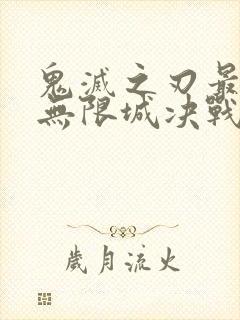 鬼滅之刃最
無限城决戰
歲月流火